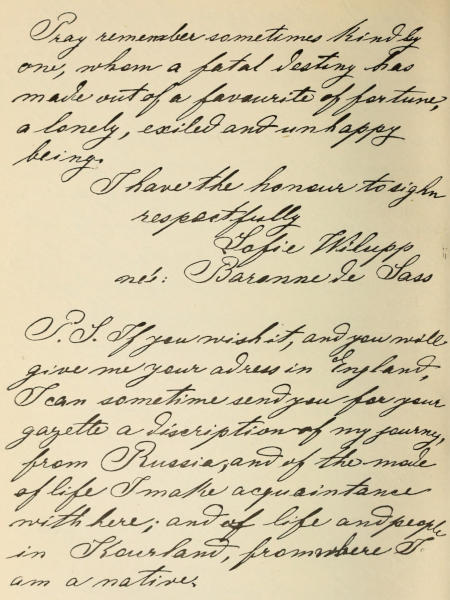 Pray remember sometimes kindly
one, whom a fatal destiny has
made out of a favourite of fortune,
a lonely, exiled and unhappy
being.
I have the honour to sighn
respectfully
Sofie Wilupp
né: Baronne de Sass
P. S. If you wish it, and you will
give me your adress in England,
I can sometime send you for your
gazette a discription of my journey,
from Russia, and of the mode
of life I make acquaintance
with here; and of life and people
in Kourland, from where I
am a native.